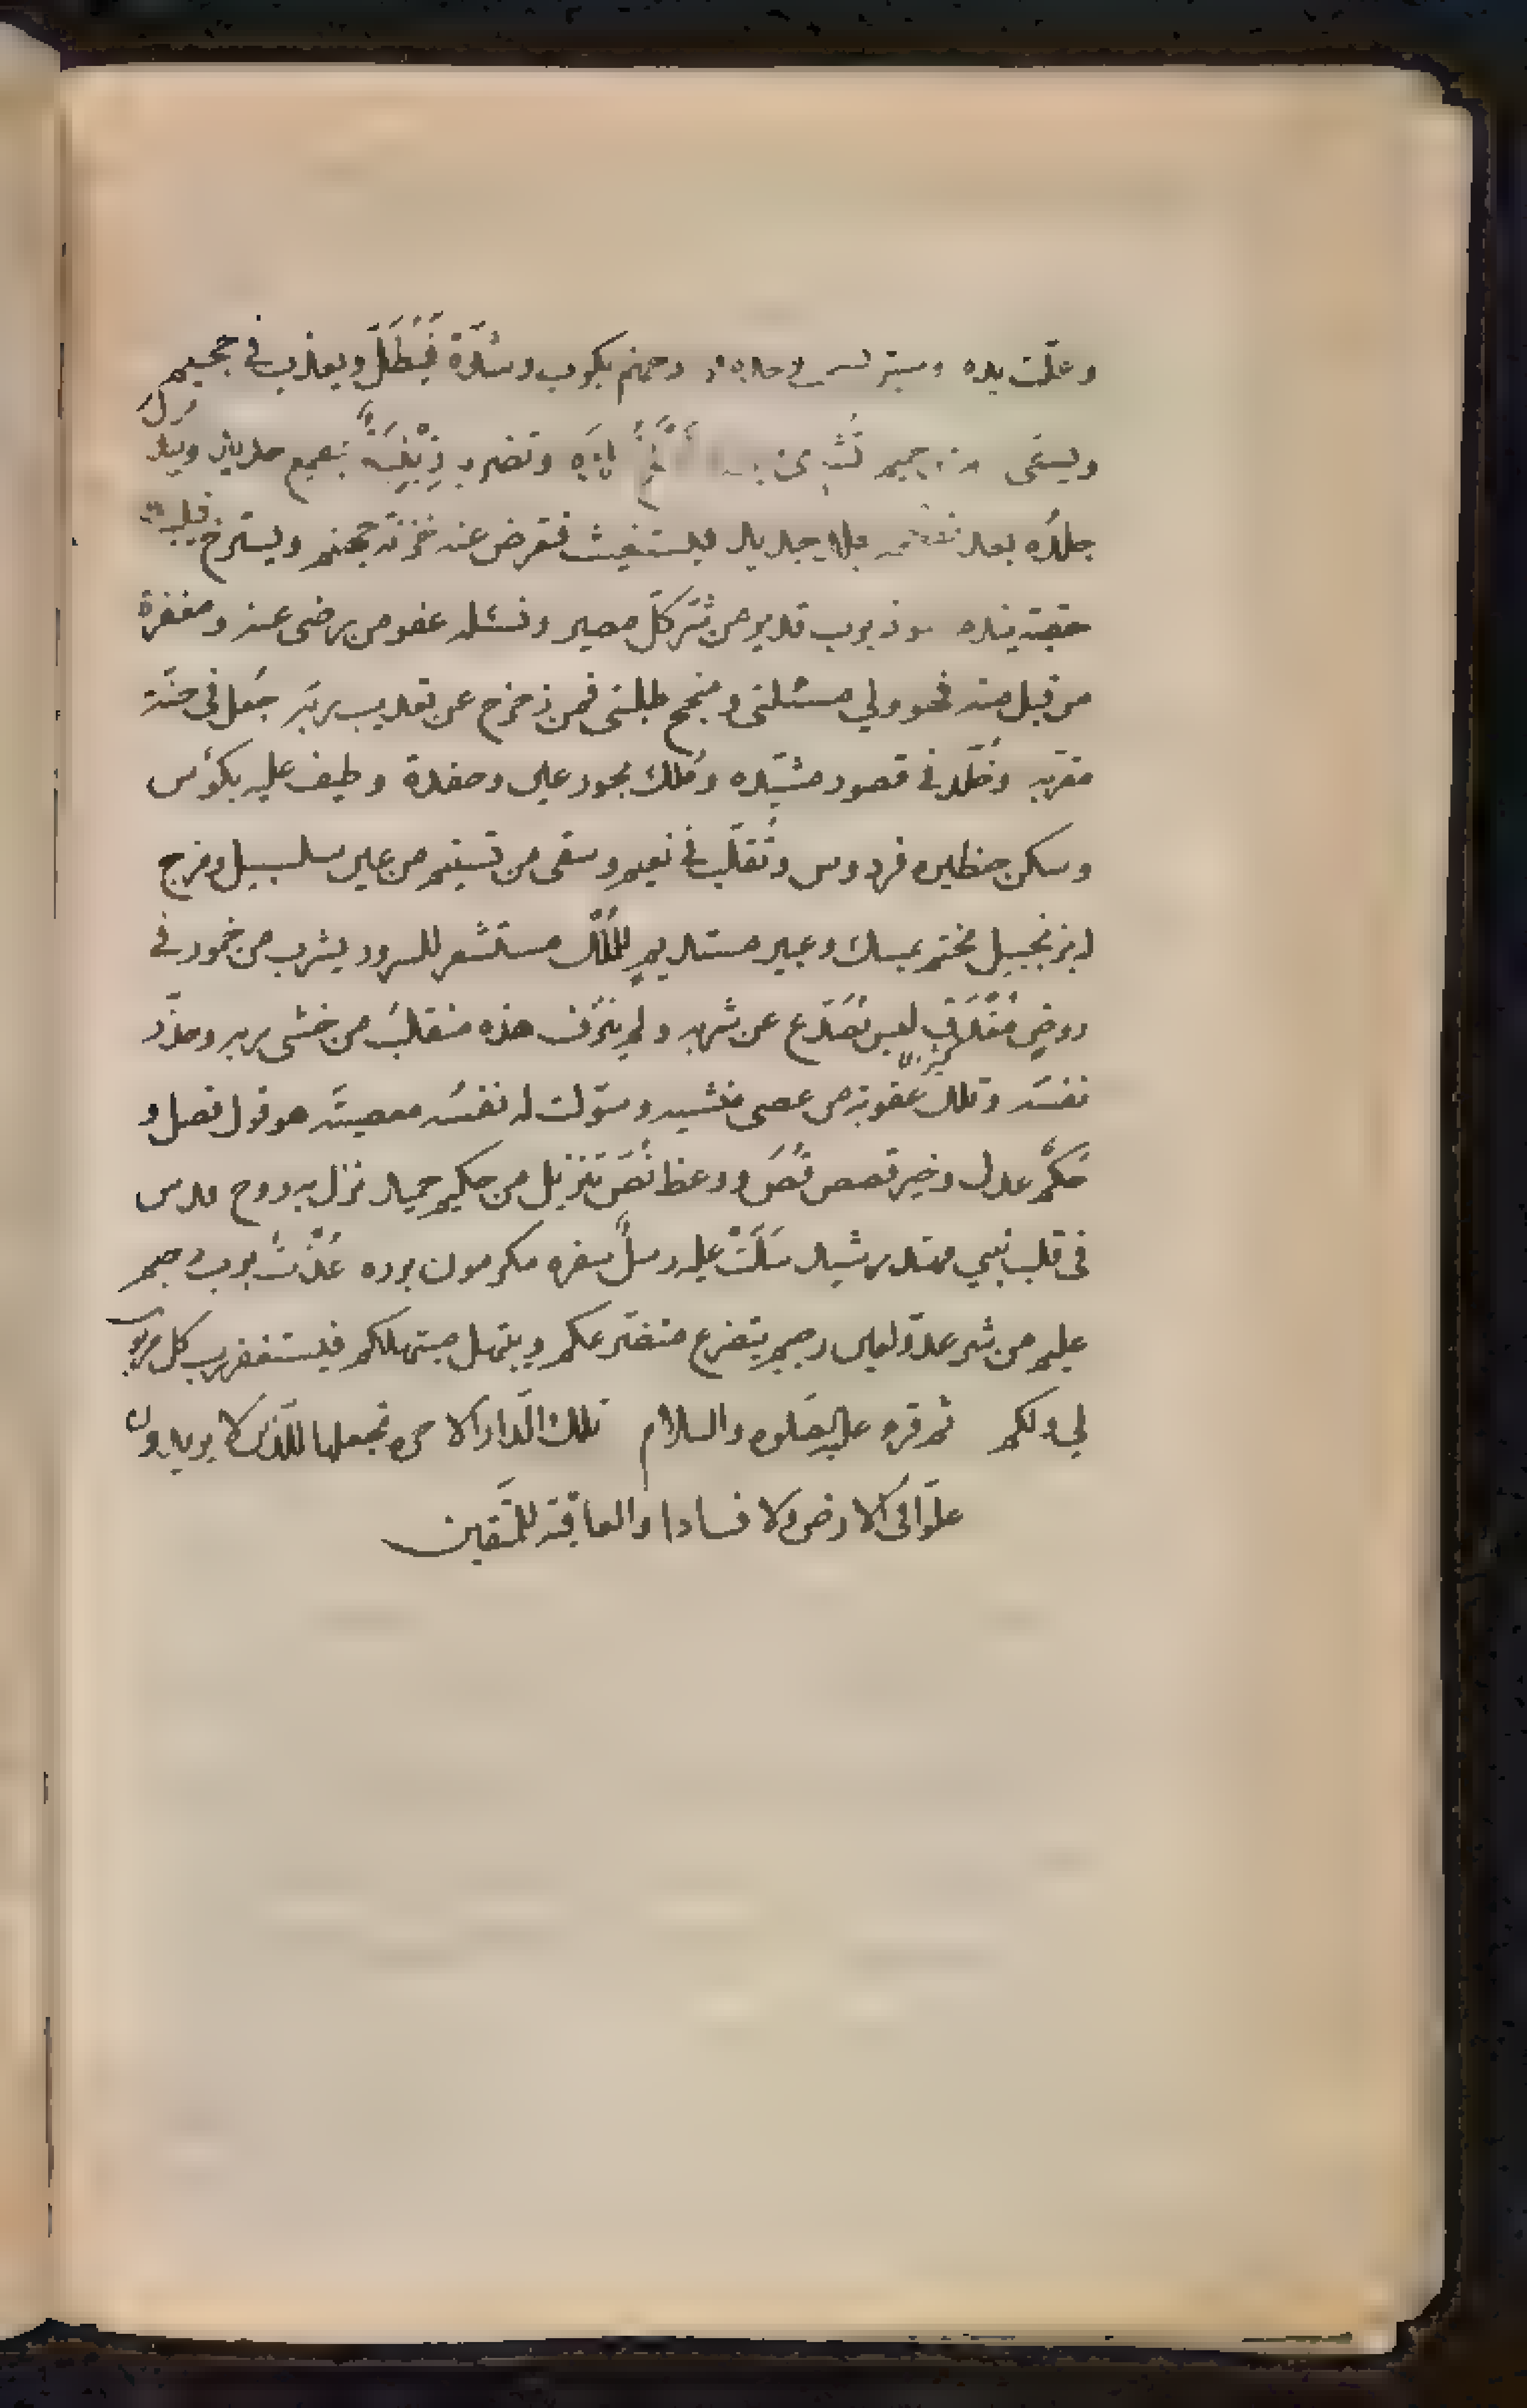 وغلّت يده وسيق وحده جهنم بكرب وشدّة فَيُطَلّ ويعذب في جحيم
ويسقى من حميم تُشوى لَه وتضرب زِبْنِيَةٌ بمقمع حديد ويعد
جلدُه بعد بجلد جديد فيستغيث فتعرض عنه خزنة جهنم ويستصرخ فيلبث
حقبة يندم نعوذ برب قدير من شرّ كلّ مصير ونسئله عفو من رضى عنه ومغفرة
من قبل منه فهو ولي مسئلتي ومنجح طلبتي فمن زحزح عن تعذيب ربّه جعل في جنّة
بقربه وخُلّد في قصور مشيّده ومُلك بحور عين وحفدة وطيف عليه بكؤس
وسكن حظيره فردوس وتُقلّب في نعيم وسقى من تسنيم من عين سلسبيل ومزج
بزنجبيل مختم بمسك وعبير مستديم للمُلك مستشعر للسرور يشرب من خمور في
روضٍ مُغْدَقٍ ليس يُصدّع عن شربه ولم ينزف هذه منقلبُ من خشى ربه وحذّر
نفسَه وتلك عقوبة من عصى منشيه وسوّلت له نفسُه معصيتَه هو قول فصل و
حُكمٌ عدل وخير قصص قُصّ ووعظ نُصّ تنزيل من حكيم حميد نزل به روح قدس
في قلب نبي مهتد رشيد صَلّتْ عليه رسلٌ سفره مكرمون برره عُذْتُ بربٍّ رحيم
عليم من شر عدوّ لعين رجيم يتضرع متضرّعكم ويبتهل مبتهلكم فليستغفر رب كل مربوب
لي ولكم ثم قرء عليه الصلوه والسلام تلك الدّار الاخره نجعلها للّذين لا يريدون
علوّا فى الارض ولا فسادا والعاقبة للمتّقين